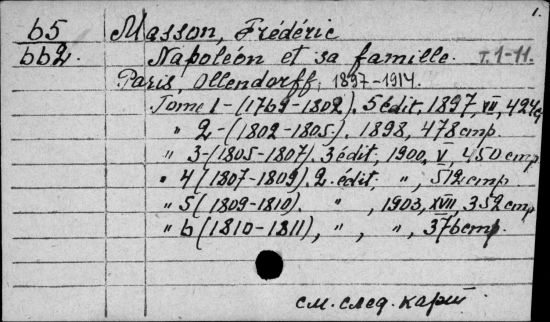 1.
65 Masson, Frédéric
662. Napoléon et sa famille. т. 1-11.
Paris, Ollendorff, 1897-1914.
Tome 1-(1769-1802). 5 édit, 1897, VII, 424 c
" 2-(1802-1805). 1898, 478 cmp.
" 3-(1805-1807). 3 édit, 1900, V, 450 cmp
" 4 (1807-1809). 2 édit, ", 512 cmp.
" 5 (1809-1810). ", 1903, XVII, 352 cmp
" 6 (1810-1811), ", ", 376 cmp.
см. след. карт